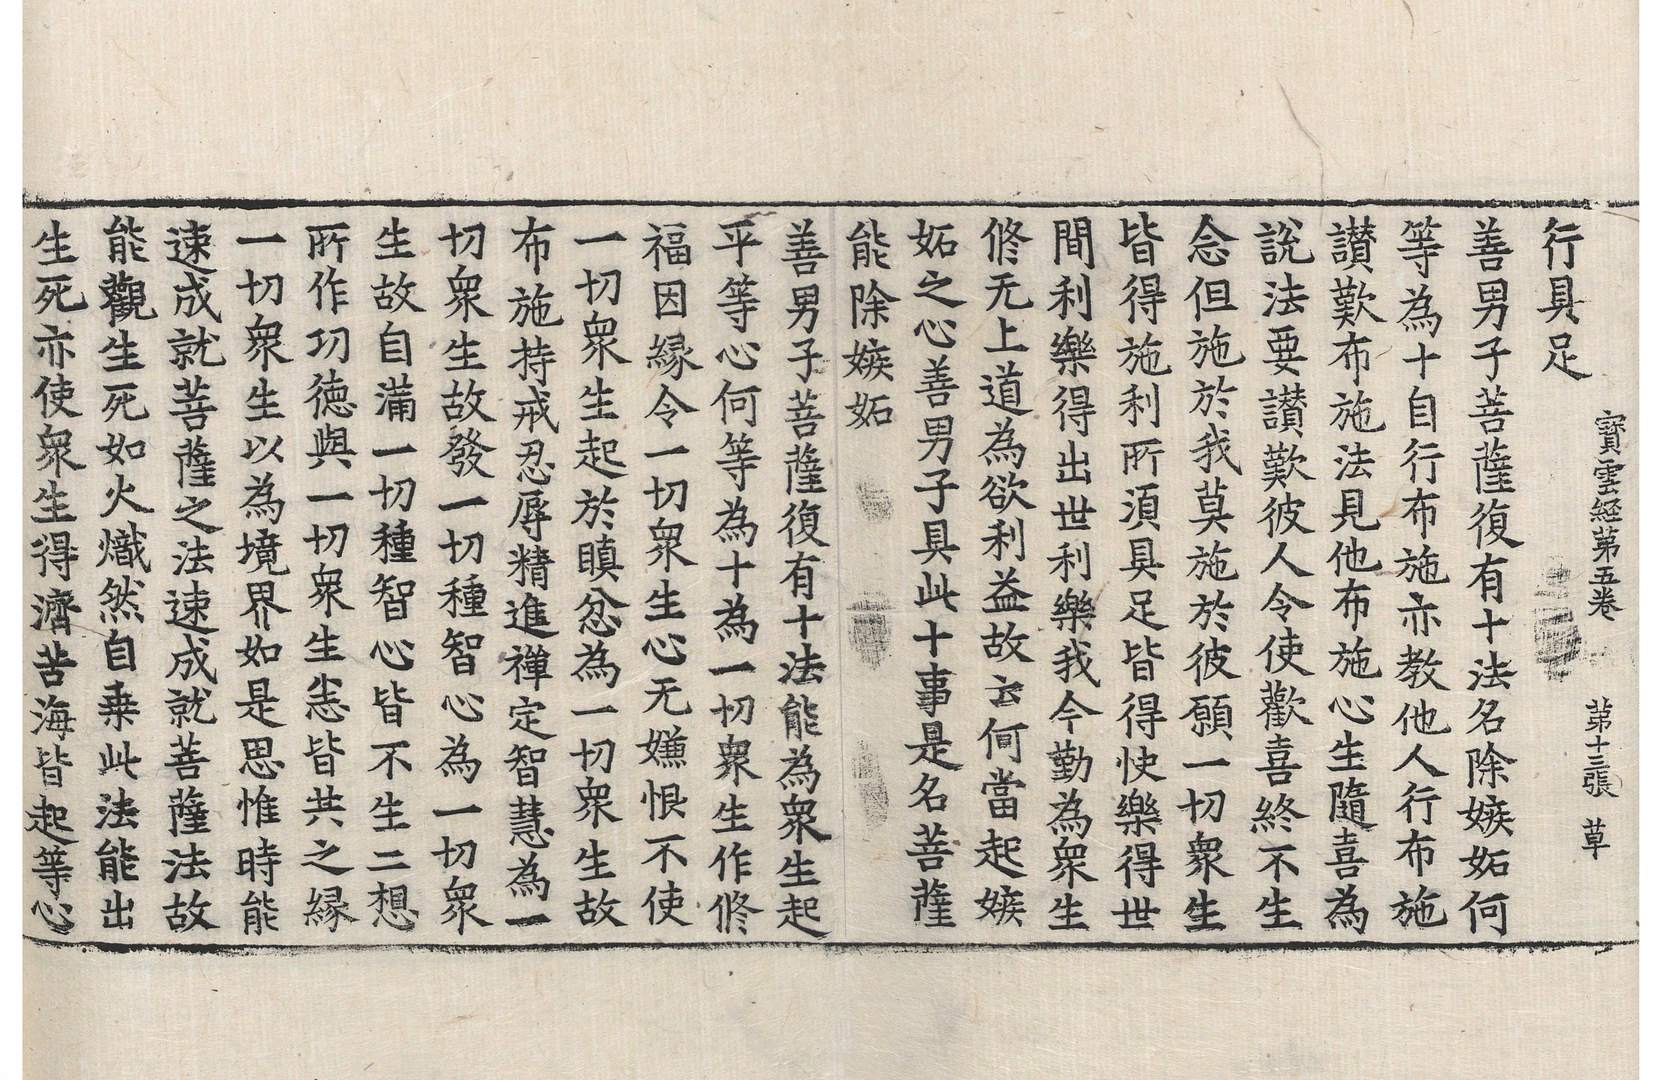 寳雲經第五卷　第十三張　草
行具足
善男子菩薩復有十法名除嫉妬何
等為十自行布施亦教他人行布施
讃歎布施法見他布施心生隨喜為
説法要讃歎彼人令使歡喜終不生
念但施於我莫施於彼願一切衆生
皆得施利所須具足皆得快樂得世
間利樂得出世利樂我今勤為衆生
修无上道為欲利益故云何當起嫉
妬之心善男子具此十事是名菩薩
能除嫉妬
善男子菩薩復有十法能為衆生起
平等心何等為十為一切衆生作修
福因縁令一切衆生心无嫌恨不使
一切衆生起於瞋忿為一切衆生故
布施持戒忍辱精進禪定智慧為一
切衆生故發一切種智心為一切衆
生故自滿一切種智心皆不生二想
所作功德與一切衆生恙皆共之縁
一切衆生以為境界如是思惟時能
速成就菩薩之法速成就菩薩法故
能觀生死如火熾然自乗此法能出
生死亦使衆生得濟苦海皆起等心